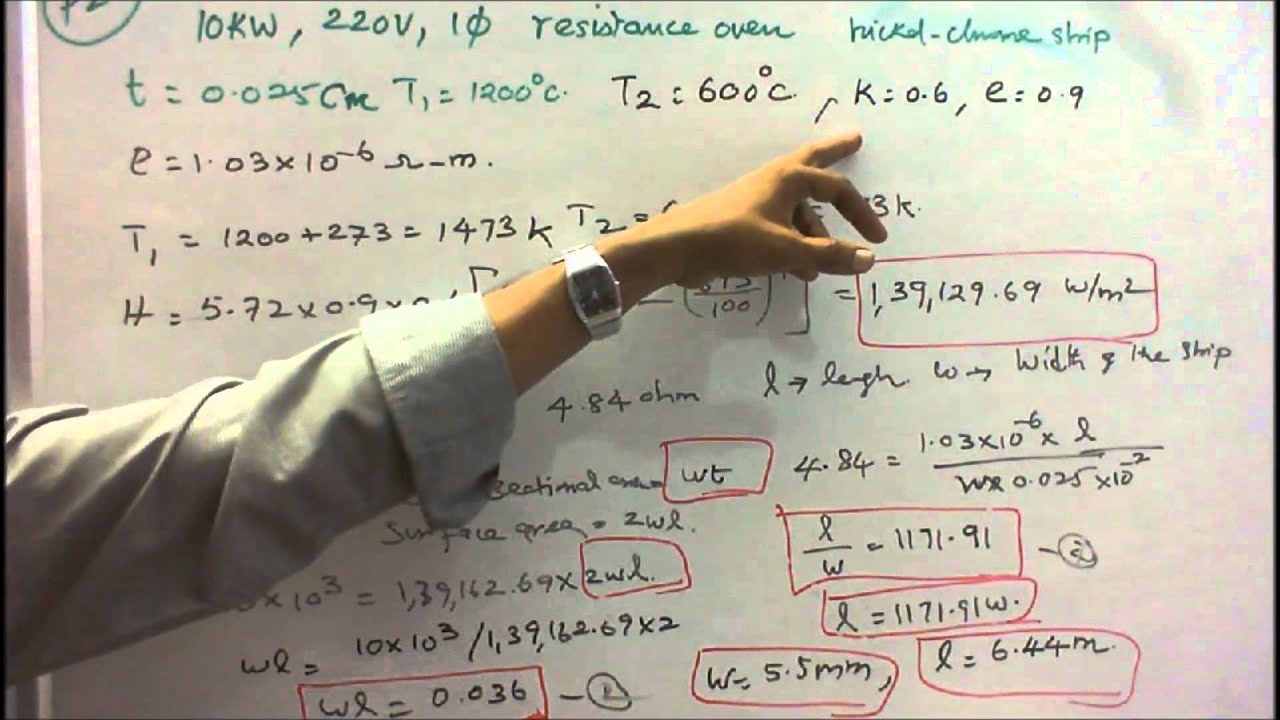 10KW, 220V, 1φ resistance oven nickel-chrome strip
t = 0.025Cm T₁ = 1200°c. T₂ = 600°c. , K = 0.6, e = 0.9
ρ = 1.03×10⁻⁶ Ω-m.
T₁ = 1200+273 = 1473 K T₂ = = 3K.
H = 5.72×0.9× [ - ( /100) ] = 1,39,129.69 W/m²
l → length. w → Width of the strip
4.84 ohm
wt
4.84 = 1.03×10⁻⁶× l / w×0.025×10⁻²
Surface area = 2wl.
l/w = 1171.91 - ②
×10³ = 1,39,162.69× 2wl.
l = 1171.91w.
wl = 10×10³/1,39,162.69×2
w = 5.5mm, l = 6.44m.
wl = 0.036 - ①